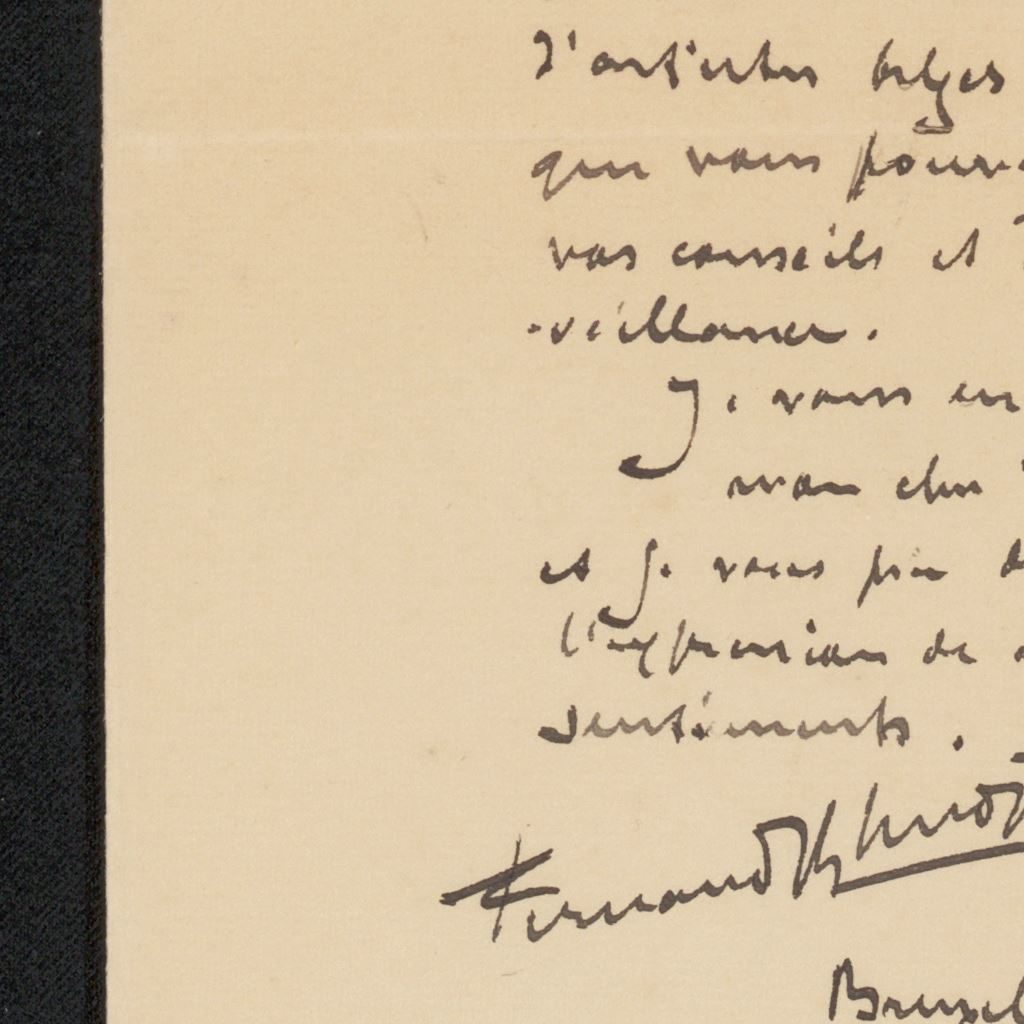 d'artistes belges
que vous pourr
vos conseils et
-veillance.
Je vous en
mon cher
et je vous prie de
l'expression de
sentiments.
Fernand Khnopff
Bruxel